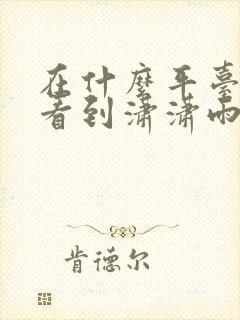 在什麼平臺
看到瀟瀟雨
肯德尔